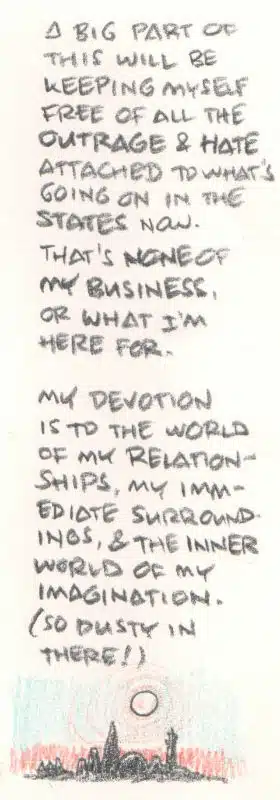 A BIG PART OF
THIS WILL BE
KEEPING MYSELF
FREE OF ALL THE
OUTRAGE & HATE
ATTACHED TO WHAT'S
GOING ON IN THE
STATES NOW.
THAT'S NONE OF
MY BUSINESS,
OR WHAT I'M
HERE FOR.
MY DEVOTION
IS TO THE WORLD
OF MY RELATION-
SHIPS, MY IMM-
EDIATE SURROUND-
INGS, & THE INNER
WORLD OF MY
IMAGINATION.
(SO DUSTY IN
THERE!)